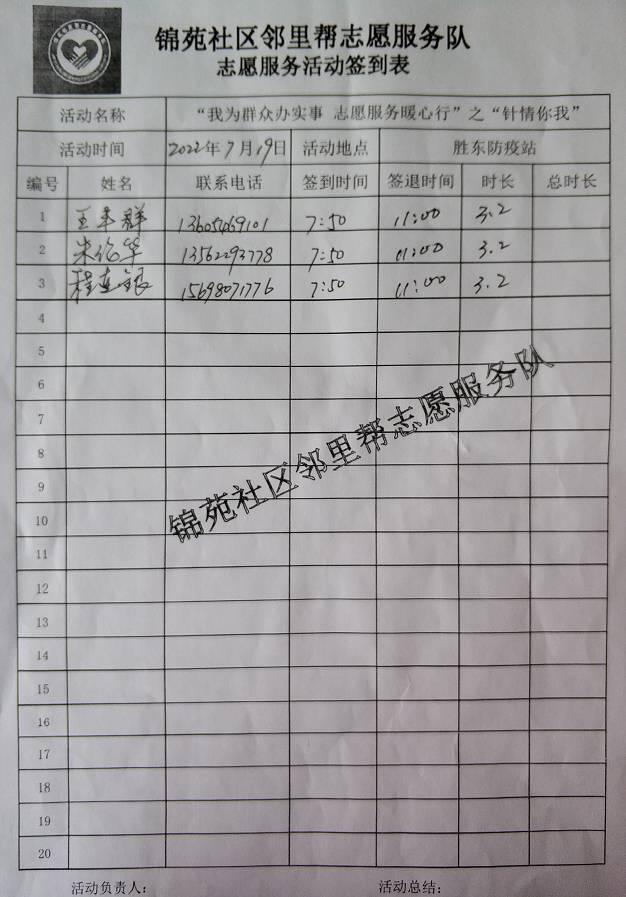 锦苑社区邻里帮志愿服务队
志愿服务活动签到表
活动名称 “我为群众办实事 志愿服务暖心行”之“针情你我”
活动时间 2022年7月19日 活动地点 胜东防疫站
编号 姓名 联系电话 签到时间 签退时间 时长 总时长
1 王丰群 7:50 11:00 3.2
2 朱伦华 13562293778 7:50 11:00 3.2
3 程连银 15698071776 7:50 11:00 3.2
4
5
6
7
8
9
10
11
12
13
14
15
16
17
18
19
20
锦苑社区邻里帮志愿服务队
活动负责人: 活动总结: